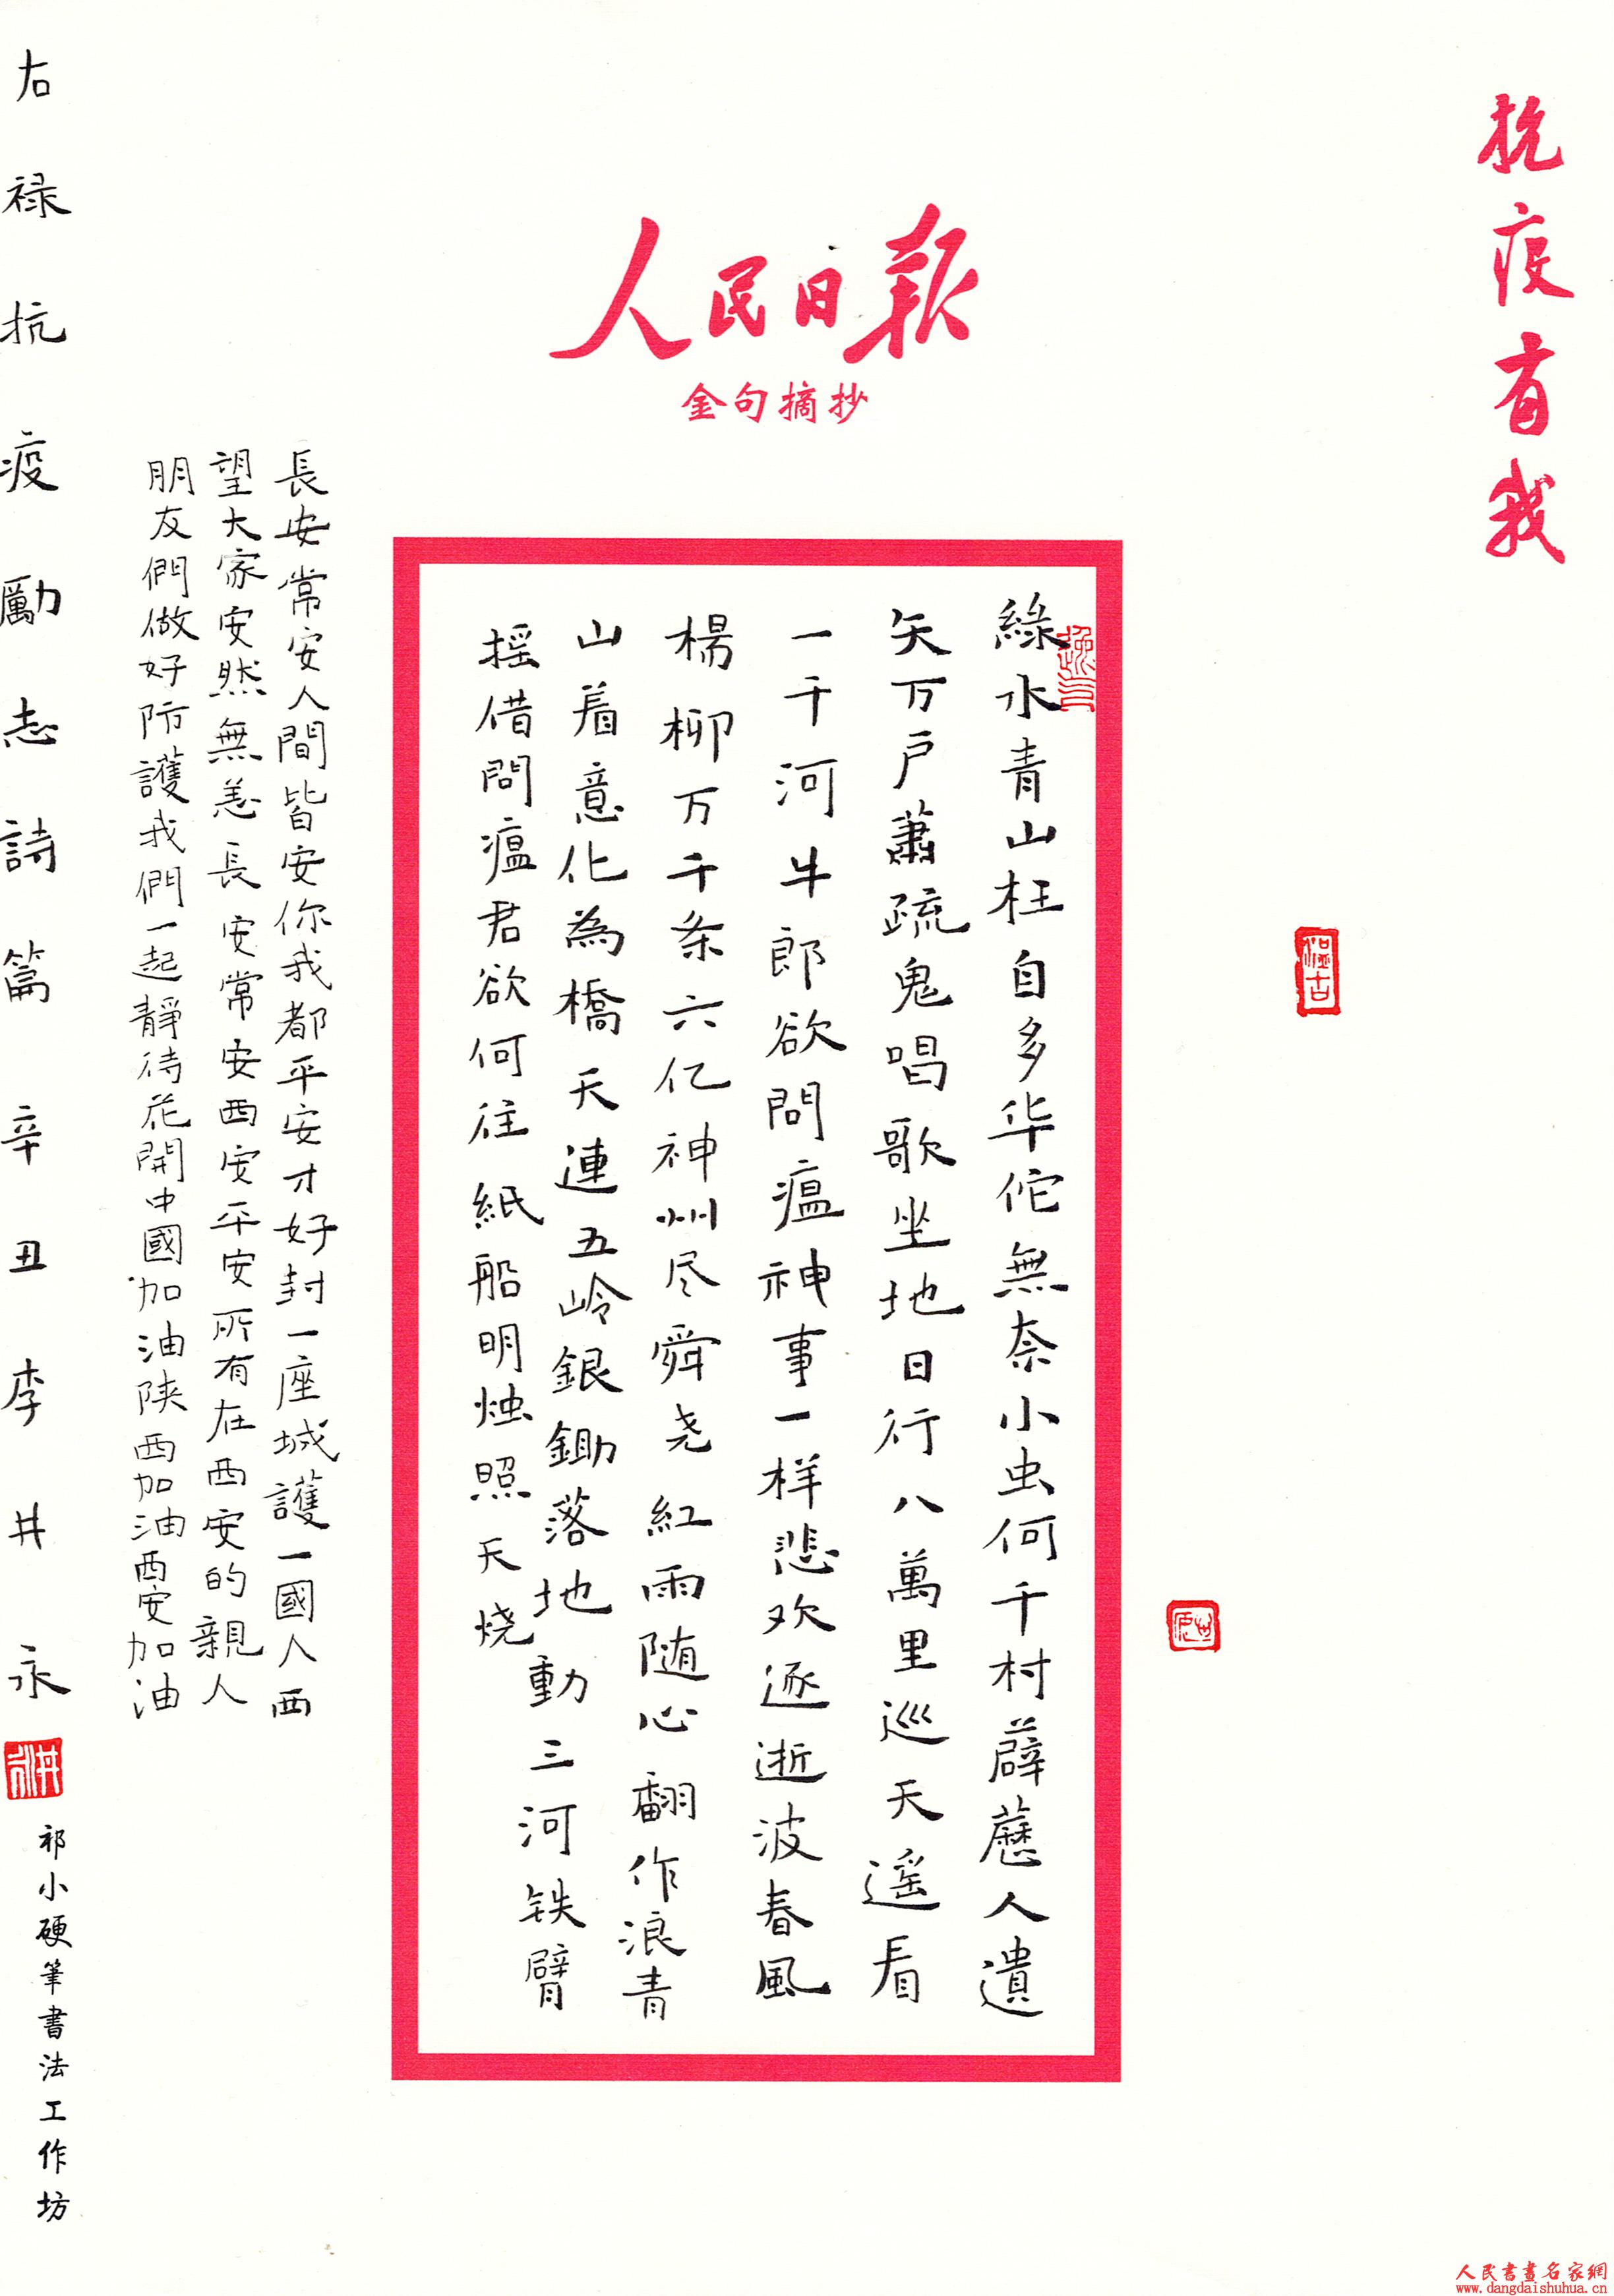 抗疫有我
人民日報
金句摘抄
綠水青山枉自多华佗無奈小虫何千村薜藶人遺
矢万户蕭疏鬼唱歌坐地日行八萬里巡天遥看
一千河牛郎欲問瘟神事一样悲欢逐逝波春風
楊柳万千条六亿神州尽舜尧紅雨随心翻作浪青
山着意化為橋天連五岭銀鋤落地動三河铁臂
摇借問瘟君欲何往紙船明烛照天烧
長安常安人間皆安你我都平安才好封一座城護一國人西
望大家安然無恙長安常安西安平安所有在西安的親人
朋友們做好防護我們一起靜待花開中國加油陕西加油西安加油
右禄抗疫勵志詩篇辛丑李井永
祁小硬筆書法工作坊
人民書畫名家網
www.dangdaishuhua.cn